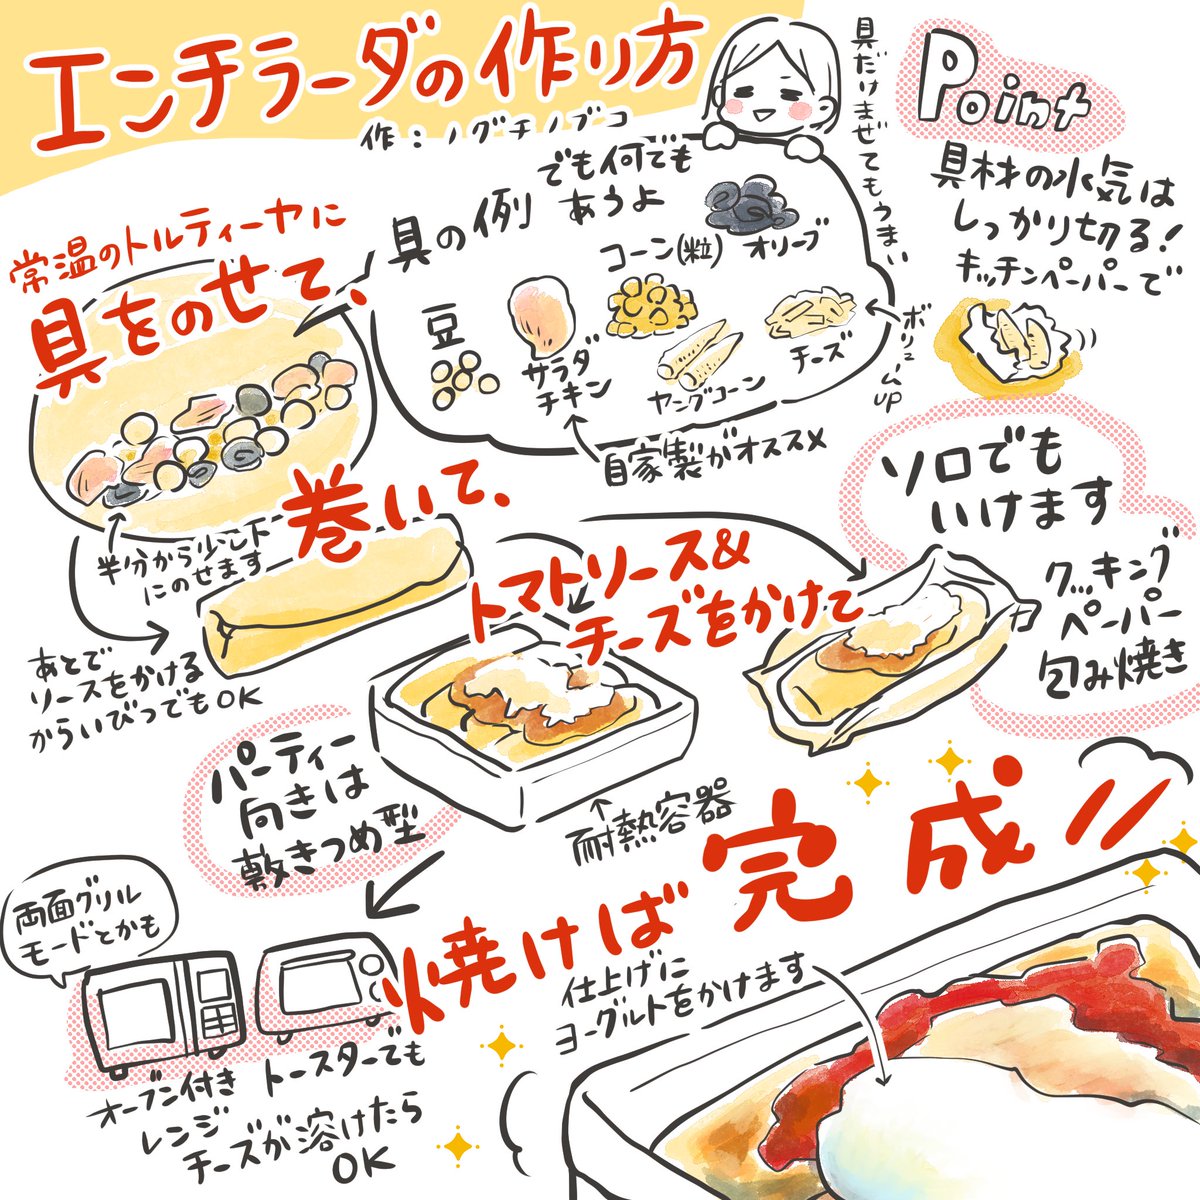 エンチラーダの作り方
作：ノグチノブコ
具だけまぜてもうまい
Point
具材の水気は
しっかり切る！
キッチンペーパーで
常温のトルティーヤに
具をのせて、
具の例
でも何でも
あうよ
オリーブ
コーン(粒)
豆
サラダ
チキン
ヤングコーン
チーズ
ボリュームUP
自家製がオススメ
半分から少し下
にのせます
巻いて、
あとで
ソースをかける
からいびつでもOK
トマトソース&
チーズをかけて
ソロでも
いけます
クッキング
ペーパー
包み焼き
パーティー
向きは
敷きつめ型
耐熱容器
焼けば完成!!
両面グリル
モードとかも
オーブン付き
レンジ
トースターでも
チーズが溶けたら
OK
仕上げに
ヨーグルトをかけます